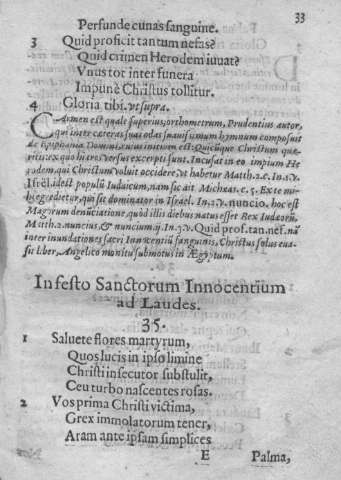 33
Persunde cunas sanguine.
3 Quid proficit tantum nefas?
Quid crimen Herodem iuuat?
Vnus tot inter funera
Impunè Christus tollitur.
4 Gloria tibi. vt supra.
CArmen est quale superius, orthometrum, Prudentius autor,
qui inter cæteras suas odas suauissimum hymnum composuit
de Epiphania Domini, cuius initium est: Quicũque Christum quæ
ritis: ex quo hi tres versus excerpti sunt. Incusat in eo impium He
rodem, qui Christum voluit occidere, vt habetur Matth. 2. c. In. 2. v.
Isrėl. idest populũ Iudaicum, nam sic ait Micheas. c. 5. Ex te mi-
hi egredietur, qui sit dominator in Israel. In. 2. v. nuncio. hoc est
Magorum denũciatione, quòd illis diebus natus esset Rex Iudæorũ.
Matth. 2. nuncius, & nuncium ij. In. 3. v. Quid prof. tan. nef. nã
inter inundationes sacri Innocentũ sanguinis, Christus solus eua-
sit liber, Angelico monitu submotus in Ægyptum.
In festo Sanctorum Innocentium
ad Laudes.
35.
1 Saluete flores martyrum,
Quos lucis in ipso limine
Christi insecutor substulit,
Ceu turbo nascentes rosas.
2 Vos prima Christi victima,
Grex immolatorum tener,
Aram ante ipsam simplices
E Palma,